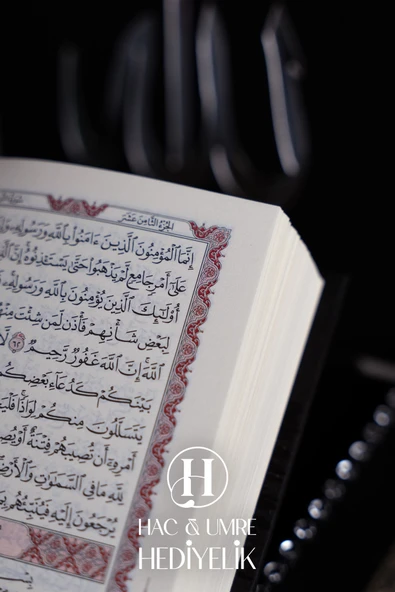 الجُزْءُ الثَّامِنَ عَشَرَ
إِنَّمَا ٱلْمُؤْمِنُونَ ٱلَّذِينَ ءَامَنُوا۟ بِٱللَّهِ وَرَسُولِهِۦ
عَلَىٰٓ أَمْرٍ جَامِعٍ لَّمْ يَذْهَبُوا۟ حَتَّىٰ يَسْتَـْٔذِنُوهُ إِنَّ
أُو۟لَـٰٓئِكَ ٱلَّذِينَ يُؤْمِنُونَ بِٱللَّهِ وَرَسُولِهِۦ
لِبَعْضِ شَأْنِهِمْ فَأْذَن لِّمَن شِئْتَ مِنْهُمْ
ٱللَّهَ إِنَّ ٱللَّهَ غَفُورٌ رَّحِيمٌ ٦٢
بَيْنَكُمْ كَدُعَآءِ بَعْضِكُم
يَتَسَلَّلُونَ مِنكُمْ لِوَاذًا
أَمْرِهِۦٓ أَن تُصِيبَهُمْ فِتْنَةٌ أَوْ
لِلَّهِ مَا فِى ٱلسَّمَـٰوَٰتِ وَٱلْأَرْضِ
يُرْجَعُونَ إِلَيْهِ فَيُنَبِّئُهُم
H
HAC & UMRE
HEDİYELİK